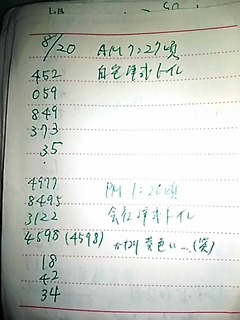 8/20 AM 7:27頃
452 自宅洋式トイレ
059
849
373
35
4977 PM 1:20頃
8495 会社洋式トイレ
3122
4598 (4598) かなり黄色い…(笑)
18
42
34